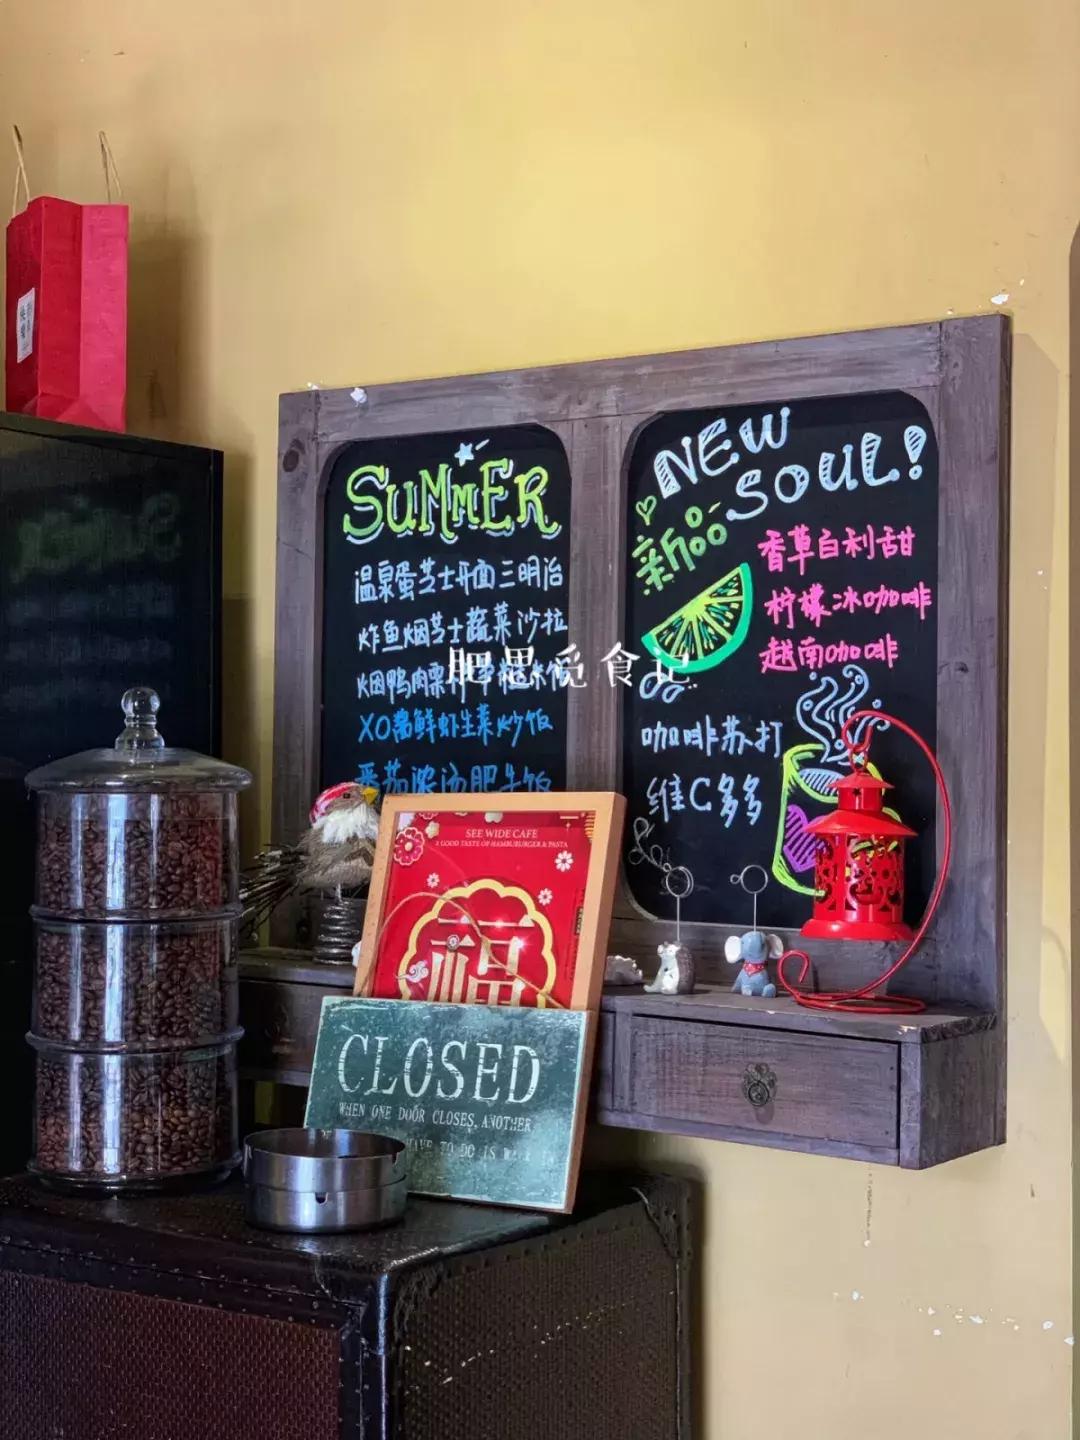 SUMMER
温泉蛋芝士开面三明治
炸鱼烟芝士蔬菜沙拉
烟鸭肉栗
XO酱鲜虾生菜炒饭
番茄浓汤肥牛饭
NEW
SOUL!
新品
香草白利甜
柠檬冰咖啡
越南咖啡
咖啡苏打
维C多多
肥思觅食记
SEE WIDE CAFE
A GOOD TASTE OF HAMBUBURGER & PASTA
福
CLOSED
WHEN ONE DOOR CLOSES, ANOTHER
HAVE TO DO IS WALK IN